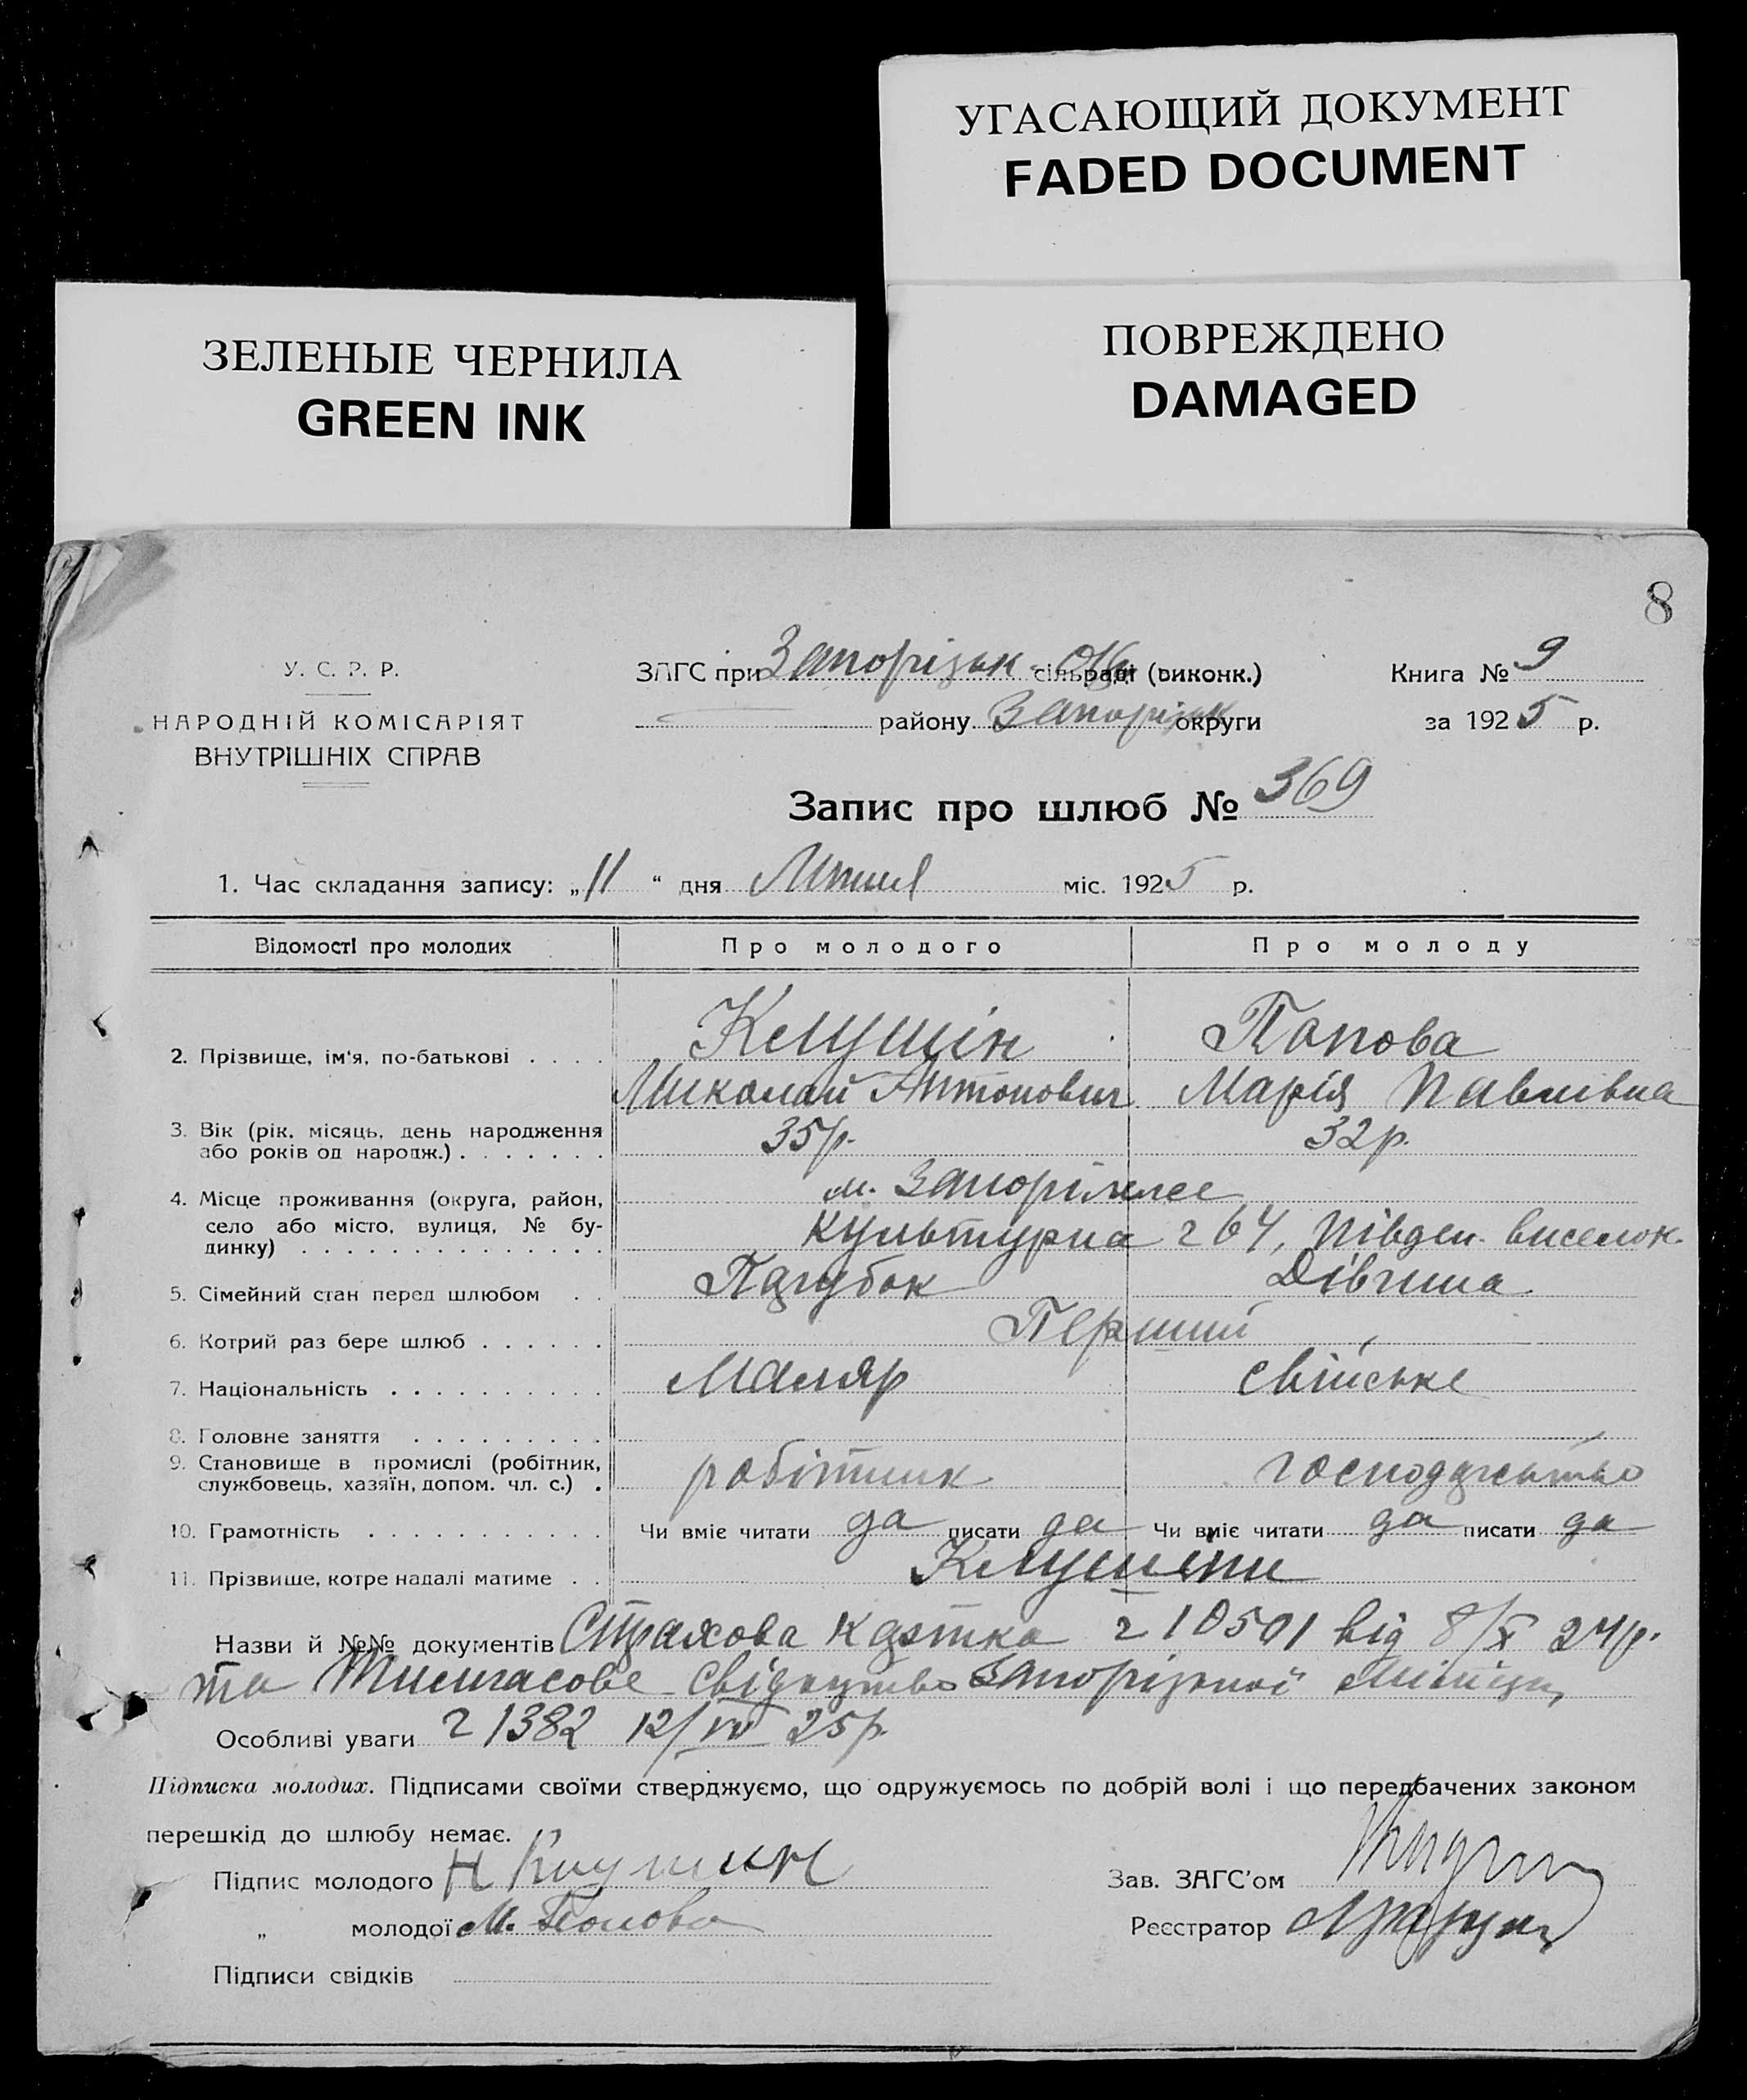 УГАСАЮЩИЙ ДОКУМЕНТ
FADED DOCUMENT
ЗЕЛЕНЫЕ ЧЕРНИЛА
GREEN INK
ПОВРЕЖДЕНО
DAMAGED
8
У. С. Р. Р.
НАРОДНІЙ КОМІСАРІЯТ
ВНУТРІШНІХ СПРАВ
ЗАГС при Запорізьк. сільраді (виконк.)
району Запорізьк округи
Книга № 9
за 1925 р.
Запис про шлюб № 369
1. Час складання запису: „11“ дня Липня міс. 1925 р.
Відомості про молодих Про молодого Про молоду
2. Прізвище, ім'я, по-батькові . . . . Клушін Попова
Миколай Антонович Марія Павлівна
3. Вік (рік, місяць, день народження або років од народж.) . . . . . . . 35 р. 32 р.
4. Місце проживання (округа, район, м. Запоріжжє
село або місто, вулиця, № будинку) . . . . . . . . . . . . . . Культурна ч 64, Півден. виселок.
5. Сімейний стан перед шлюбом . . Парубок Дівчина
6. Котрий раз бере шлюб . . . . . . Перший
7. Національність . . . . . . . . . . Маляр свійське
8. Головне заняття . . . . . . . . .
9. Становище в промислі (робітник, службовець, хазяїн, допом. чл. с.) . робітник господарство
10. Грамотність . . . . . . . . . . . Чи вміє читати да писати да Чи вміє читати да писати да
11. Прізвище, котре надалі матиме . . Клушіни
Назви й №№ документів Страхова картка ч 10501 від 8/X 24 р.
та Тимчасове свідоцтво Запорізької міліції
Особливі уваги ч 1382 12/IV 25 р.
Підписка молодих. Підписами своїми стверджуємо, що одружуємось по добрій волі і що передбачених законом
перешкід до шлюбу немає.
Підпис молодого Н Клушин
Зав. ЗАГС'ом
„ молодої М. Попова
Реєстратор
Підписи свідків